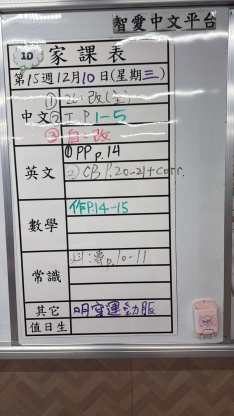 智愛中文平台
1D 家課表
第15週12月10日(星期三)
中文
②工:1-5
③自:改
英文
①PP p.14
②CB p.20-21+Corr.
數學
作P.14-15
常識
p.10-11
其它
明穿運動服
值日生